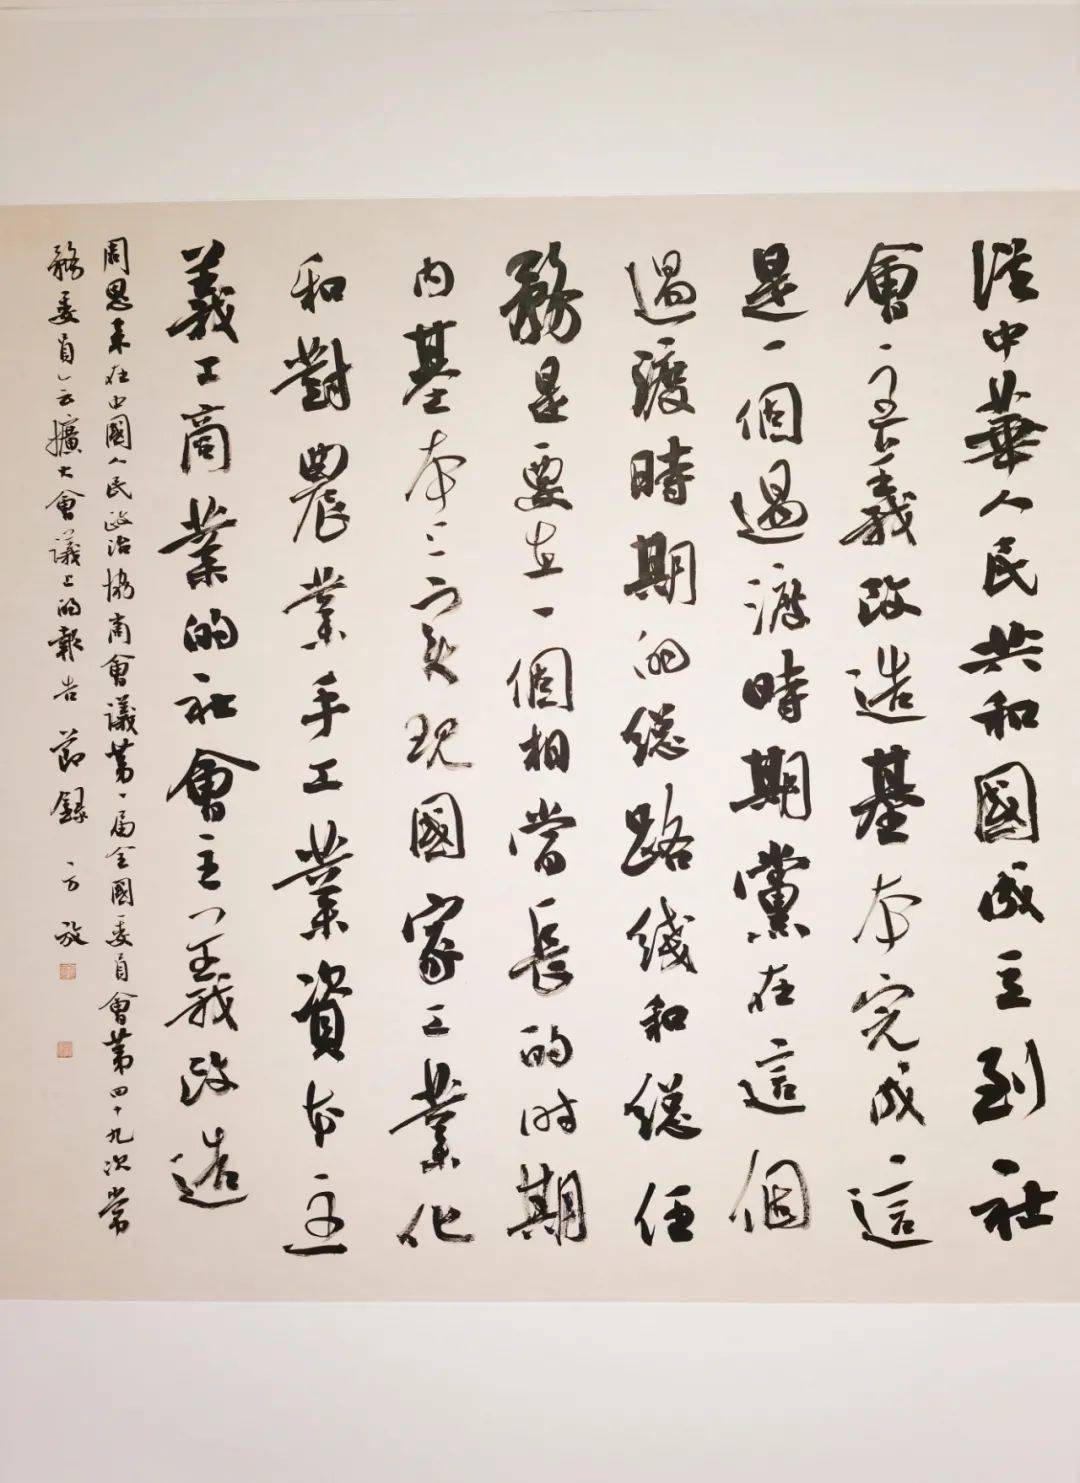 從中華人民共和國成立到社
會主義改造基本完成這
是一個過渡時期黨在這個
過渡時期的總路线和總任
務是要在一個相當長的时期
内基本上實現國家工業化
和對農業手工業資本主
義工商業的社會主義改造
周恩来在中國人民政治协商會議第一届全國委員會第四十九次常
務委員會擴大會議上的報告節錄 方放